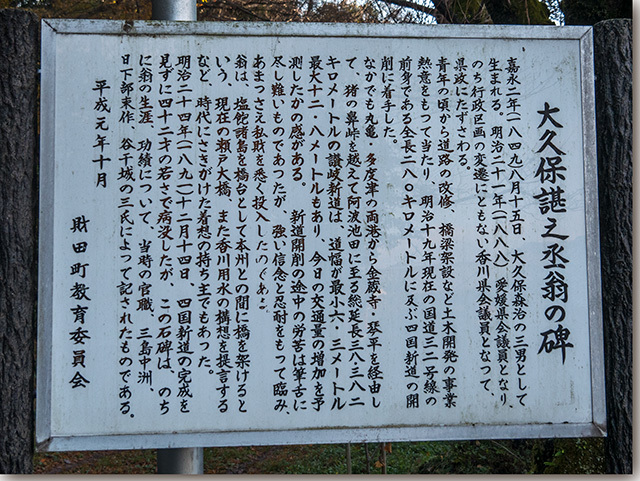 大久保諶之丞翁の碑
嘉永二年(一八四九)八月十五日、大久保森治の三男として
生まれる。明治二十一年(一八八八)愛媛県会議員となり、
のち行政区画の変遷にともない香川県会議員となって、
県政にたずさわる。
青年の頃から道路の改修、橋梁架設など土木開発の事業
熱意をもって当たり、明治十九年現在の国道三二号線の
前身である全長二八〇キロメートルに及ぶ四国新道の開
削に着手した。
なかでも丸亀・多度津の両港から金蔵寺・琴平を経由し
て、猪の鼻峠を越えて阿波池田に至る総延長三八・三八二
キロメートルの讃岐新道は、道幅が最小六・三メートル
最大十二・八メートルもあり、今日の交通量の増加を予
測したかの感がある。 新道開削の途中の労苦は筆舌に
尽し難いものであったが、強い信念と忍耐をもって臨み、
あまっさえ私財を悉く投入したのである。
翁は、塩飽諸島を橋台として本州との間に橋を架けると
いう、現在の瀬戸大橋、また香川用水の構想を提言する
など、時代にさきがけた着想の持ち主でもあった。
明治二十四年(一八九一)十二月十四日、四国新道の完成を
見ずに四十二才の若さで病没したが、この石碑は、のち
に翁の生涯、功績について、当時の官職、三島中洲、
日下部東作、谷干城の三氏によって記されたものである。
平成元年十月
財田町教育委員会